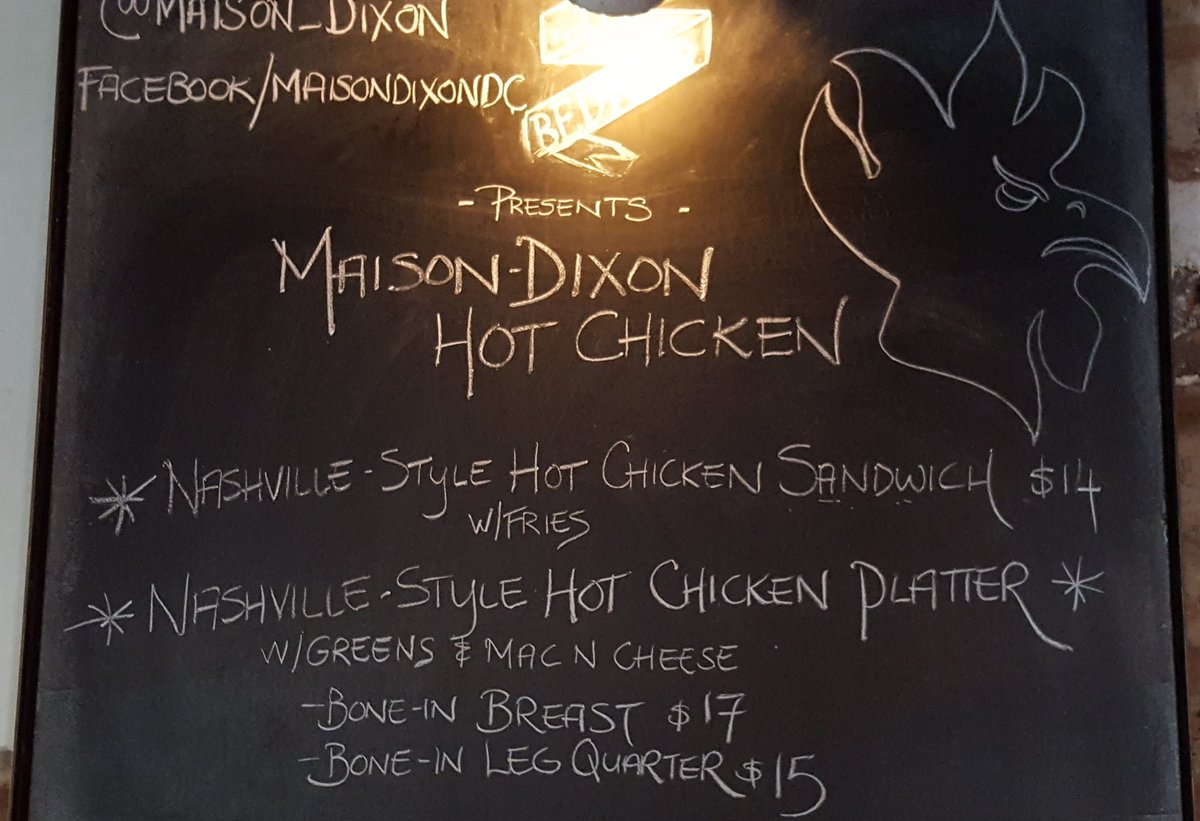 @MAISON_DIXON
FACEBOOK/MAISONDIXONDC
- PRESENTS -
MAISON-DIXON
HOT CHICKEN
* NASHVILLE-STYLE HOT CHICKEN SANDWICH $14
W/FRIES
* NASHVILLE-STYLE HOT CHICKEN PLATTER *
W/GREENS & MAC N CHEESE
-BONE-IN BREAST $17
-BONE-IN LEG QUARTER $15